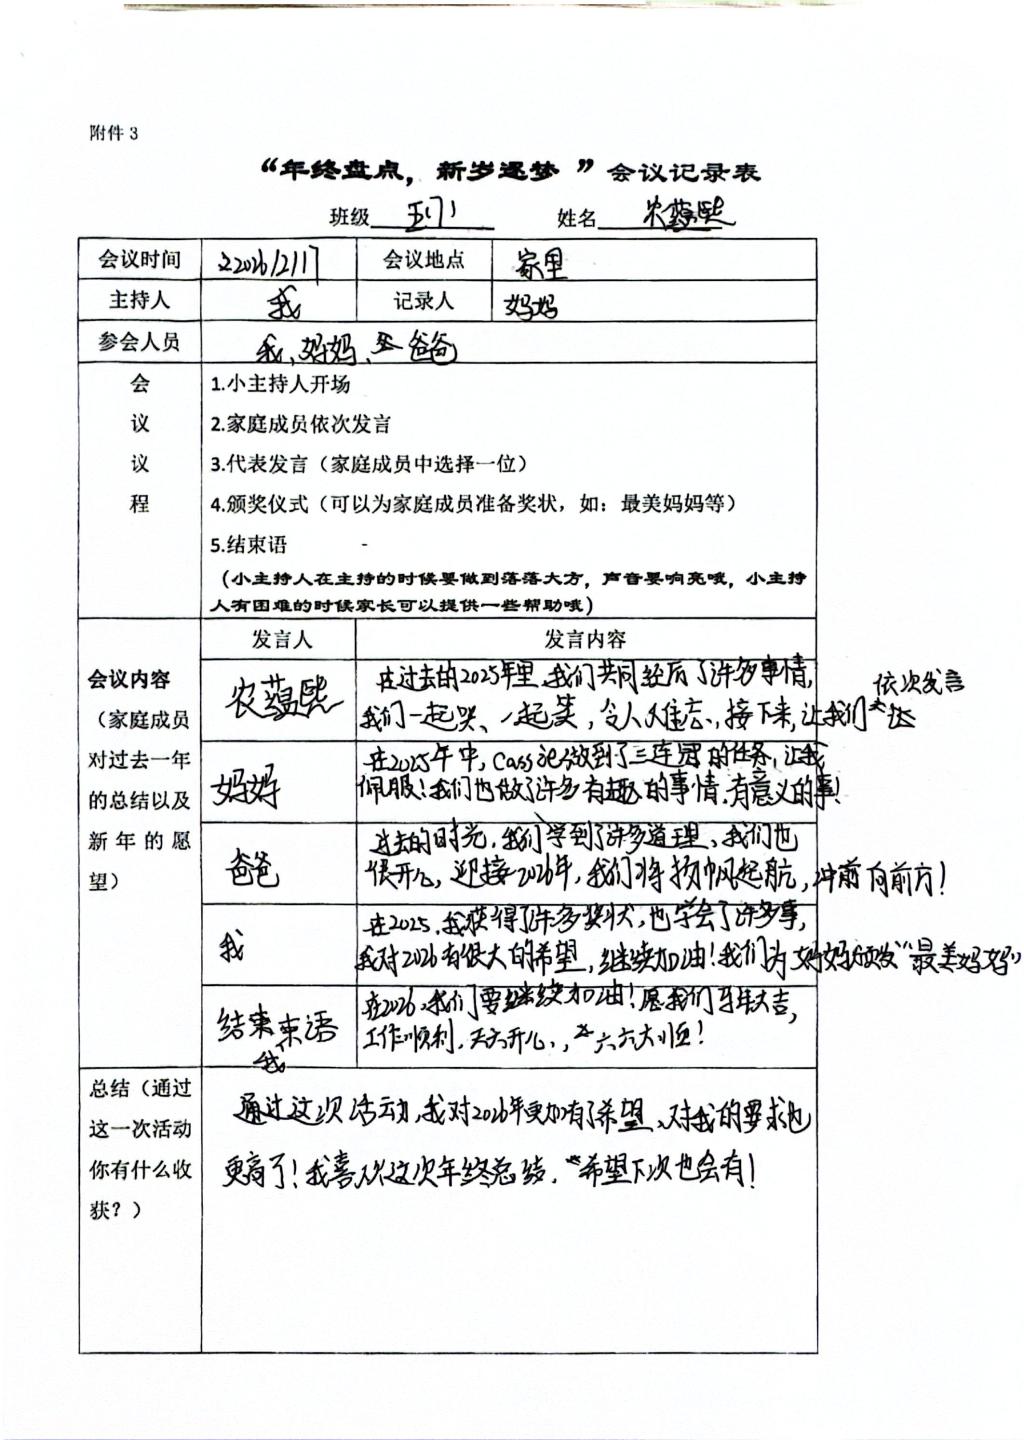 附件 3
“年终盘点，新岁逐梦 ”会议记录表
班级 五(7) 姓名 农蕴熙
会议时间 2026/2/17 会议地点 家里
主持人 我 记录人 妈妈
参会人员 我、妈妈、爸爸
会议议程
1.小主持人开场
2.家庭成员依次发言
3.代表发言（家庭成员中选择一位）
4.颁奖仪式（可以为家庭成员准备奖状，如：最美妈妈等）
5.结束语
（小主持人在主持的时候要做到落落大方，声音要响亮哦，小主持
人有困难的时候家长可以提供一些帮助哦）
会议内容
（家庭成员
对过去一年
的总结以及
新年的愿
望）
发言人 发言内容
农蕴熙
在过去的2025年里，我们共同经历了许多事情，
我们一起哭、一起笑，令人难忘，接下来，让我们依次发言
妈妈
在2025年中，做到了三连冠的任务，让我
佩服！我们也做了许多有趣的事情，有意义的事！
爸爸
过去的时光，我们学到了许多道理、我们也
很开心，迎接2026年，我们将扬帆起航，冲前向前方！
我
在2025，我获得了许多奖状，也学会了许多事，
我对2026有很大的希望，继续加油！我们为妈妈颁发“最美妈妈”
结束束语
我
在2026，我们要继续加油！愿我们马年大吉，
工作顺利，天天开心，六六大顺！
总结（通过
这一次活动
你有什么收
获？）
通过这次活动，我对2026年更加有了希望、对我的要求也
更高了！我喜欢这次年终总结，希望下次也会有！